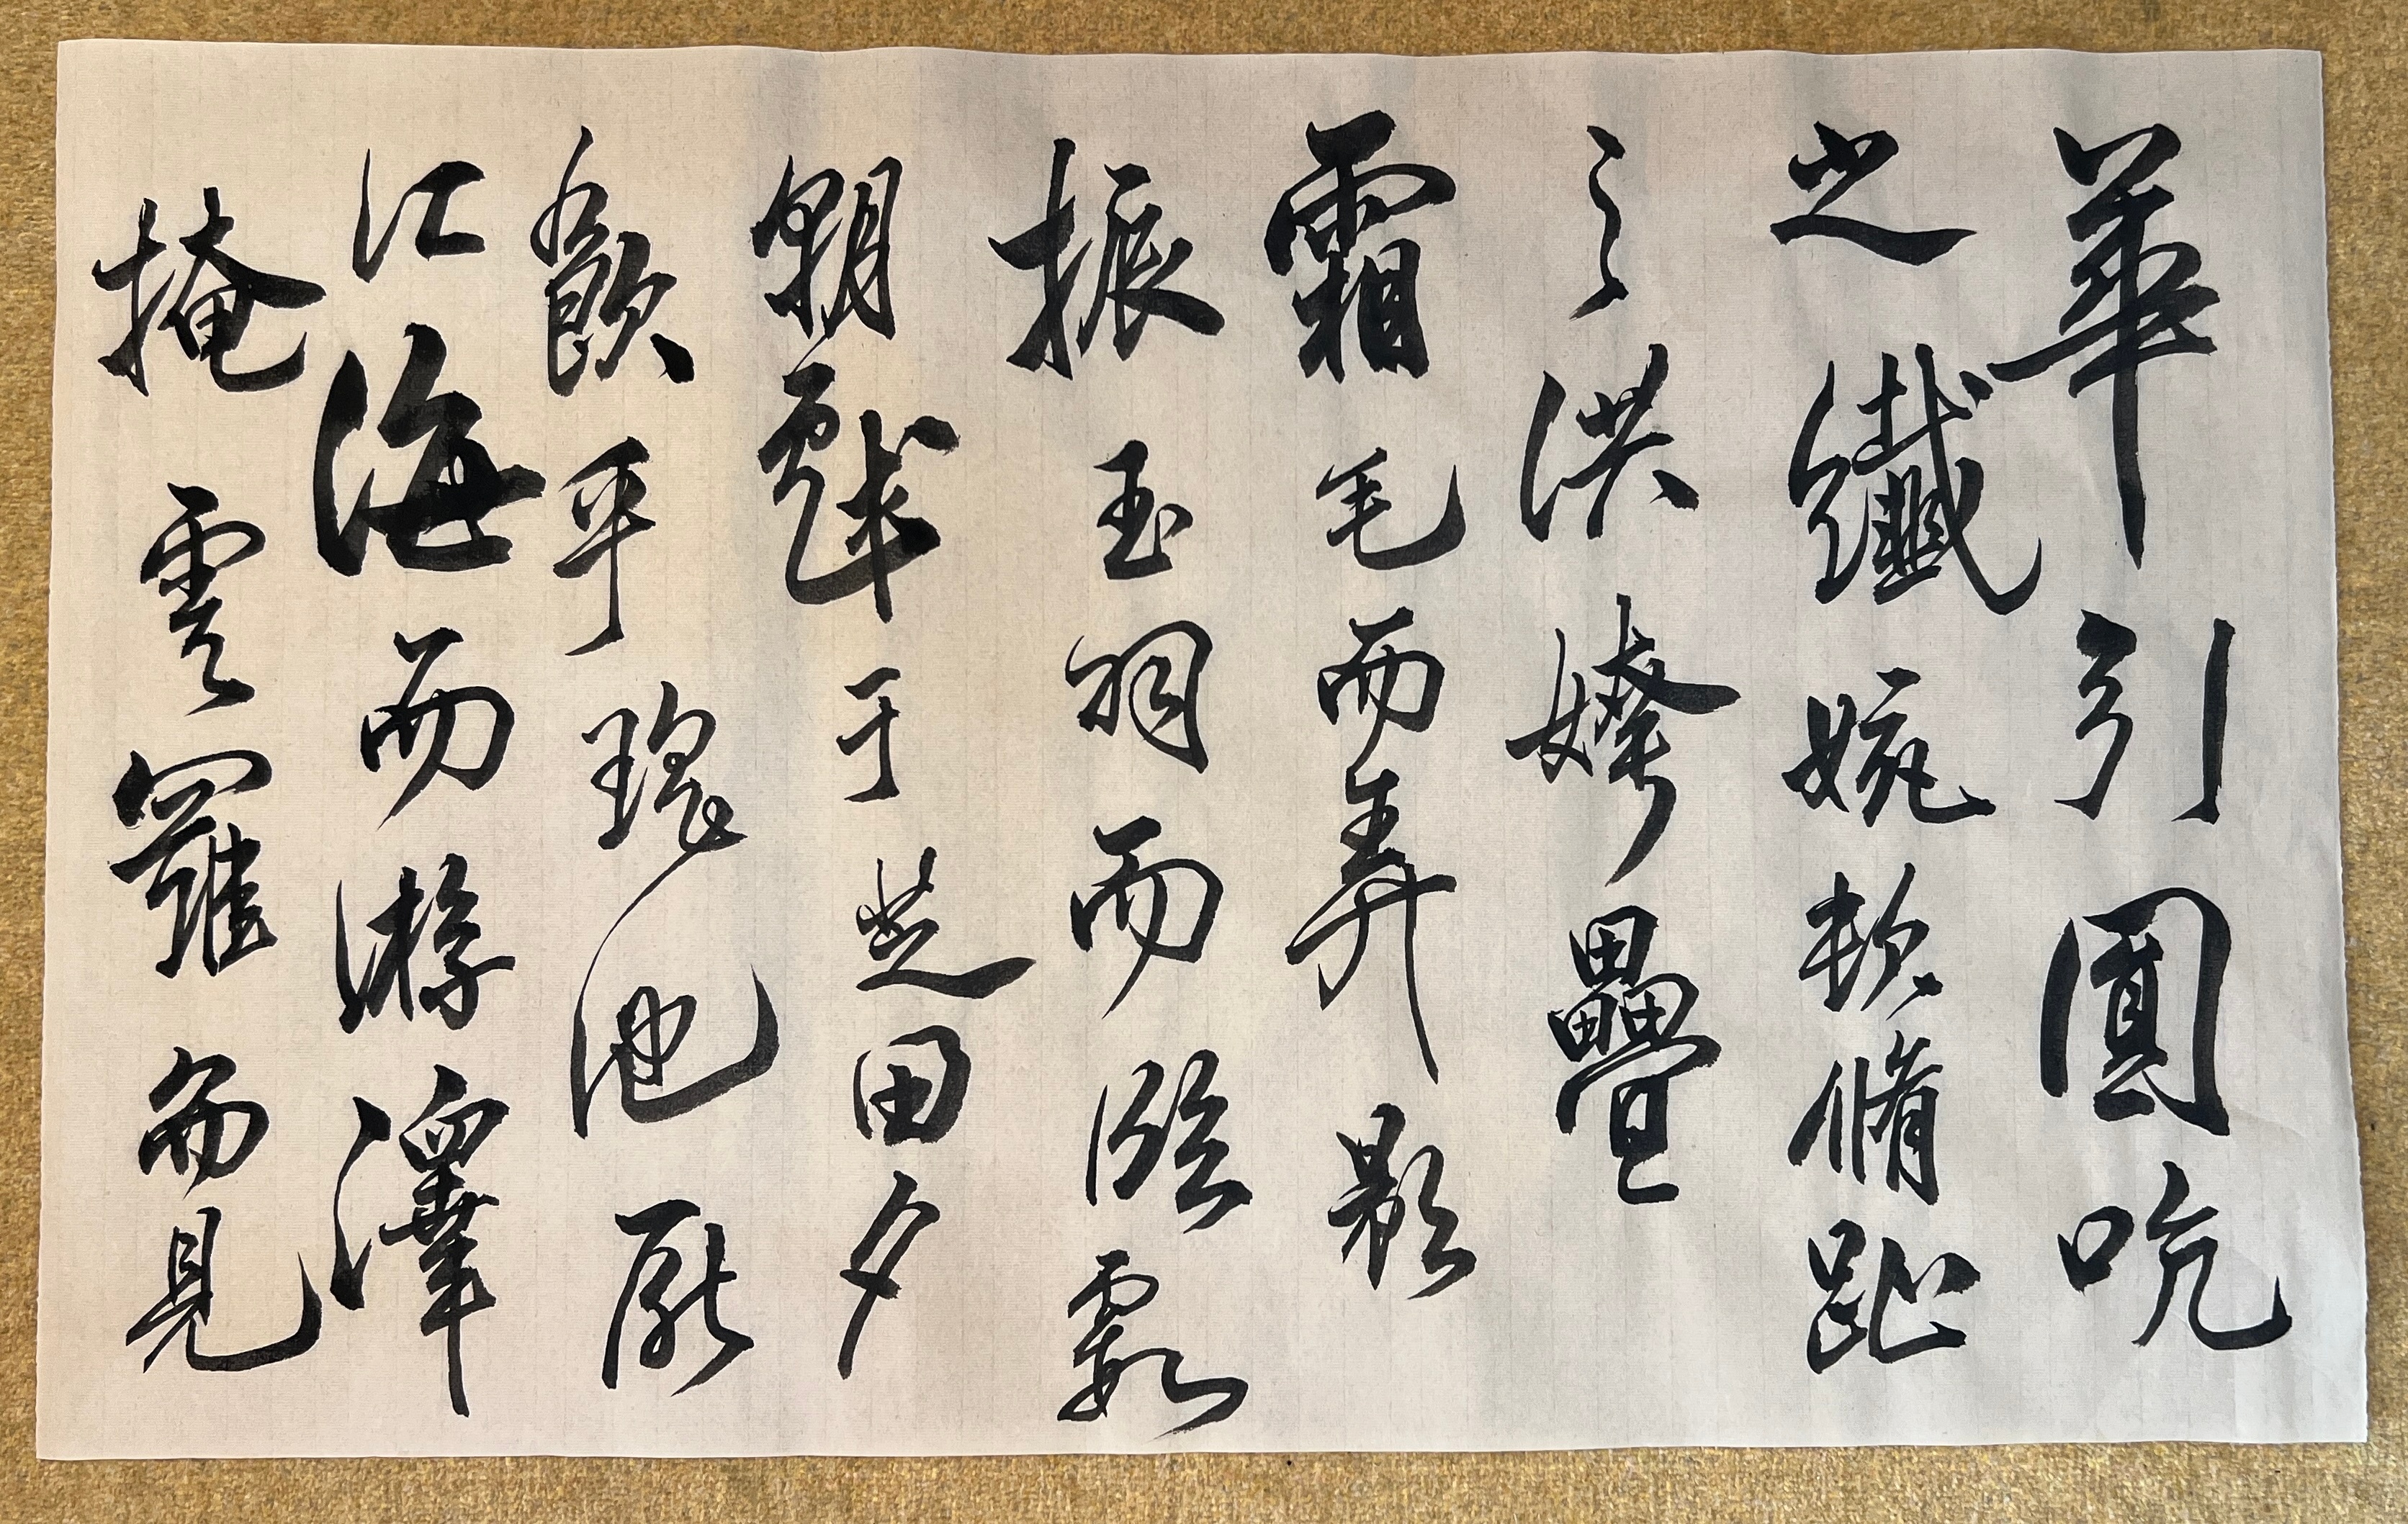 華引圓吭
之纖婉頓脩趾
之洪姱疊
霜毛而弄影
振玉羽而臨霞
朝戲于芝田夕
飲乎瑤池厭
江海而游澤
掩雲羅而見